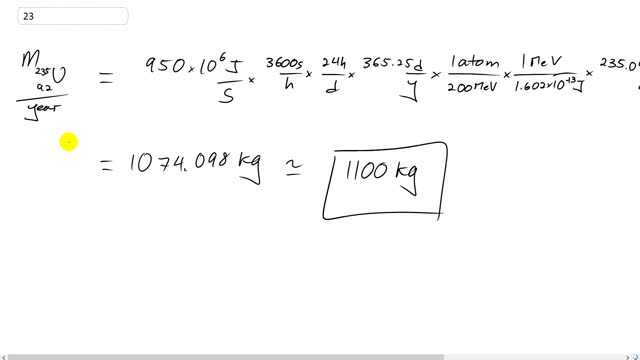 23
M ²³⁵₉₂U / year = 950×10⁶ J/s × 3600s/h × 24h/d × 365.25d/y × 1 atom/200 MeV × 1 MeV/1.602×10⁻¹³J × 235.0
= 1074.098 kg ≃ 1100 kg